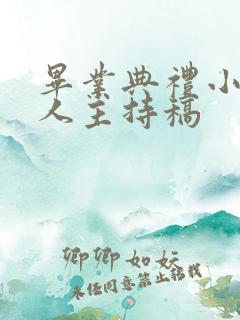 畢業典禮小
人主持稿
卿卿如妘
未经同意禁止转载